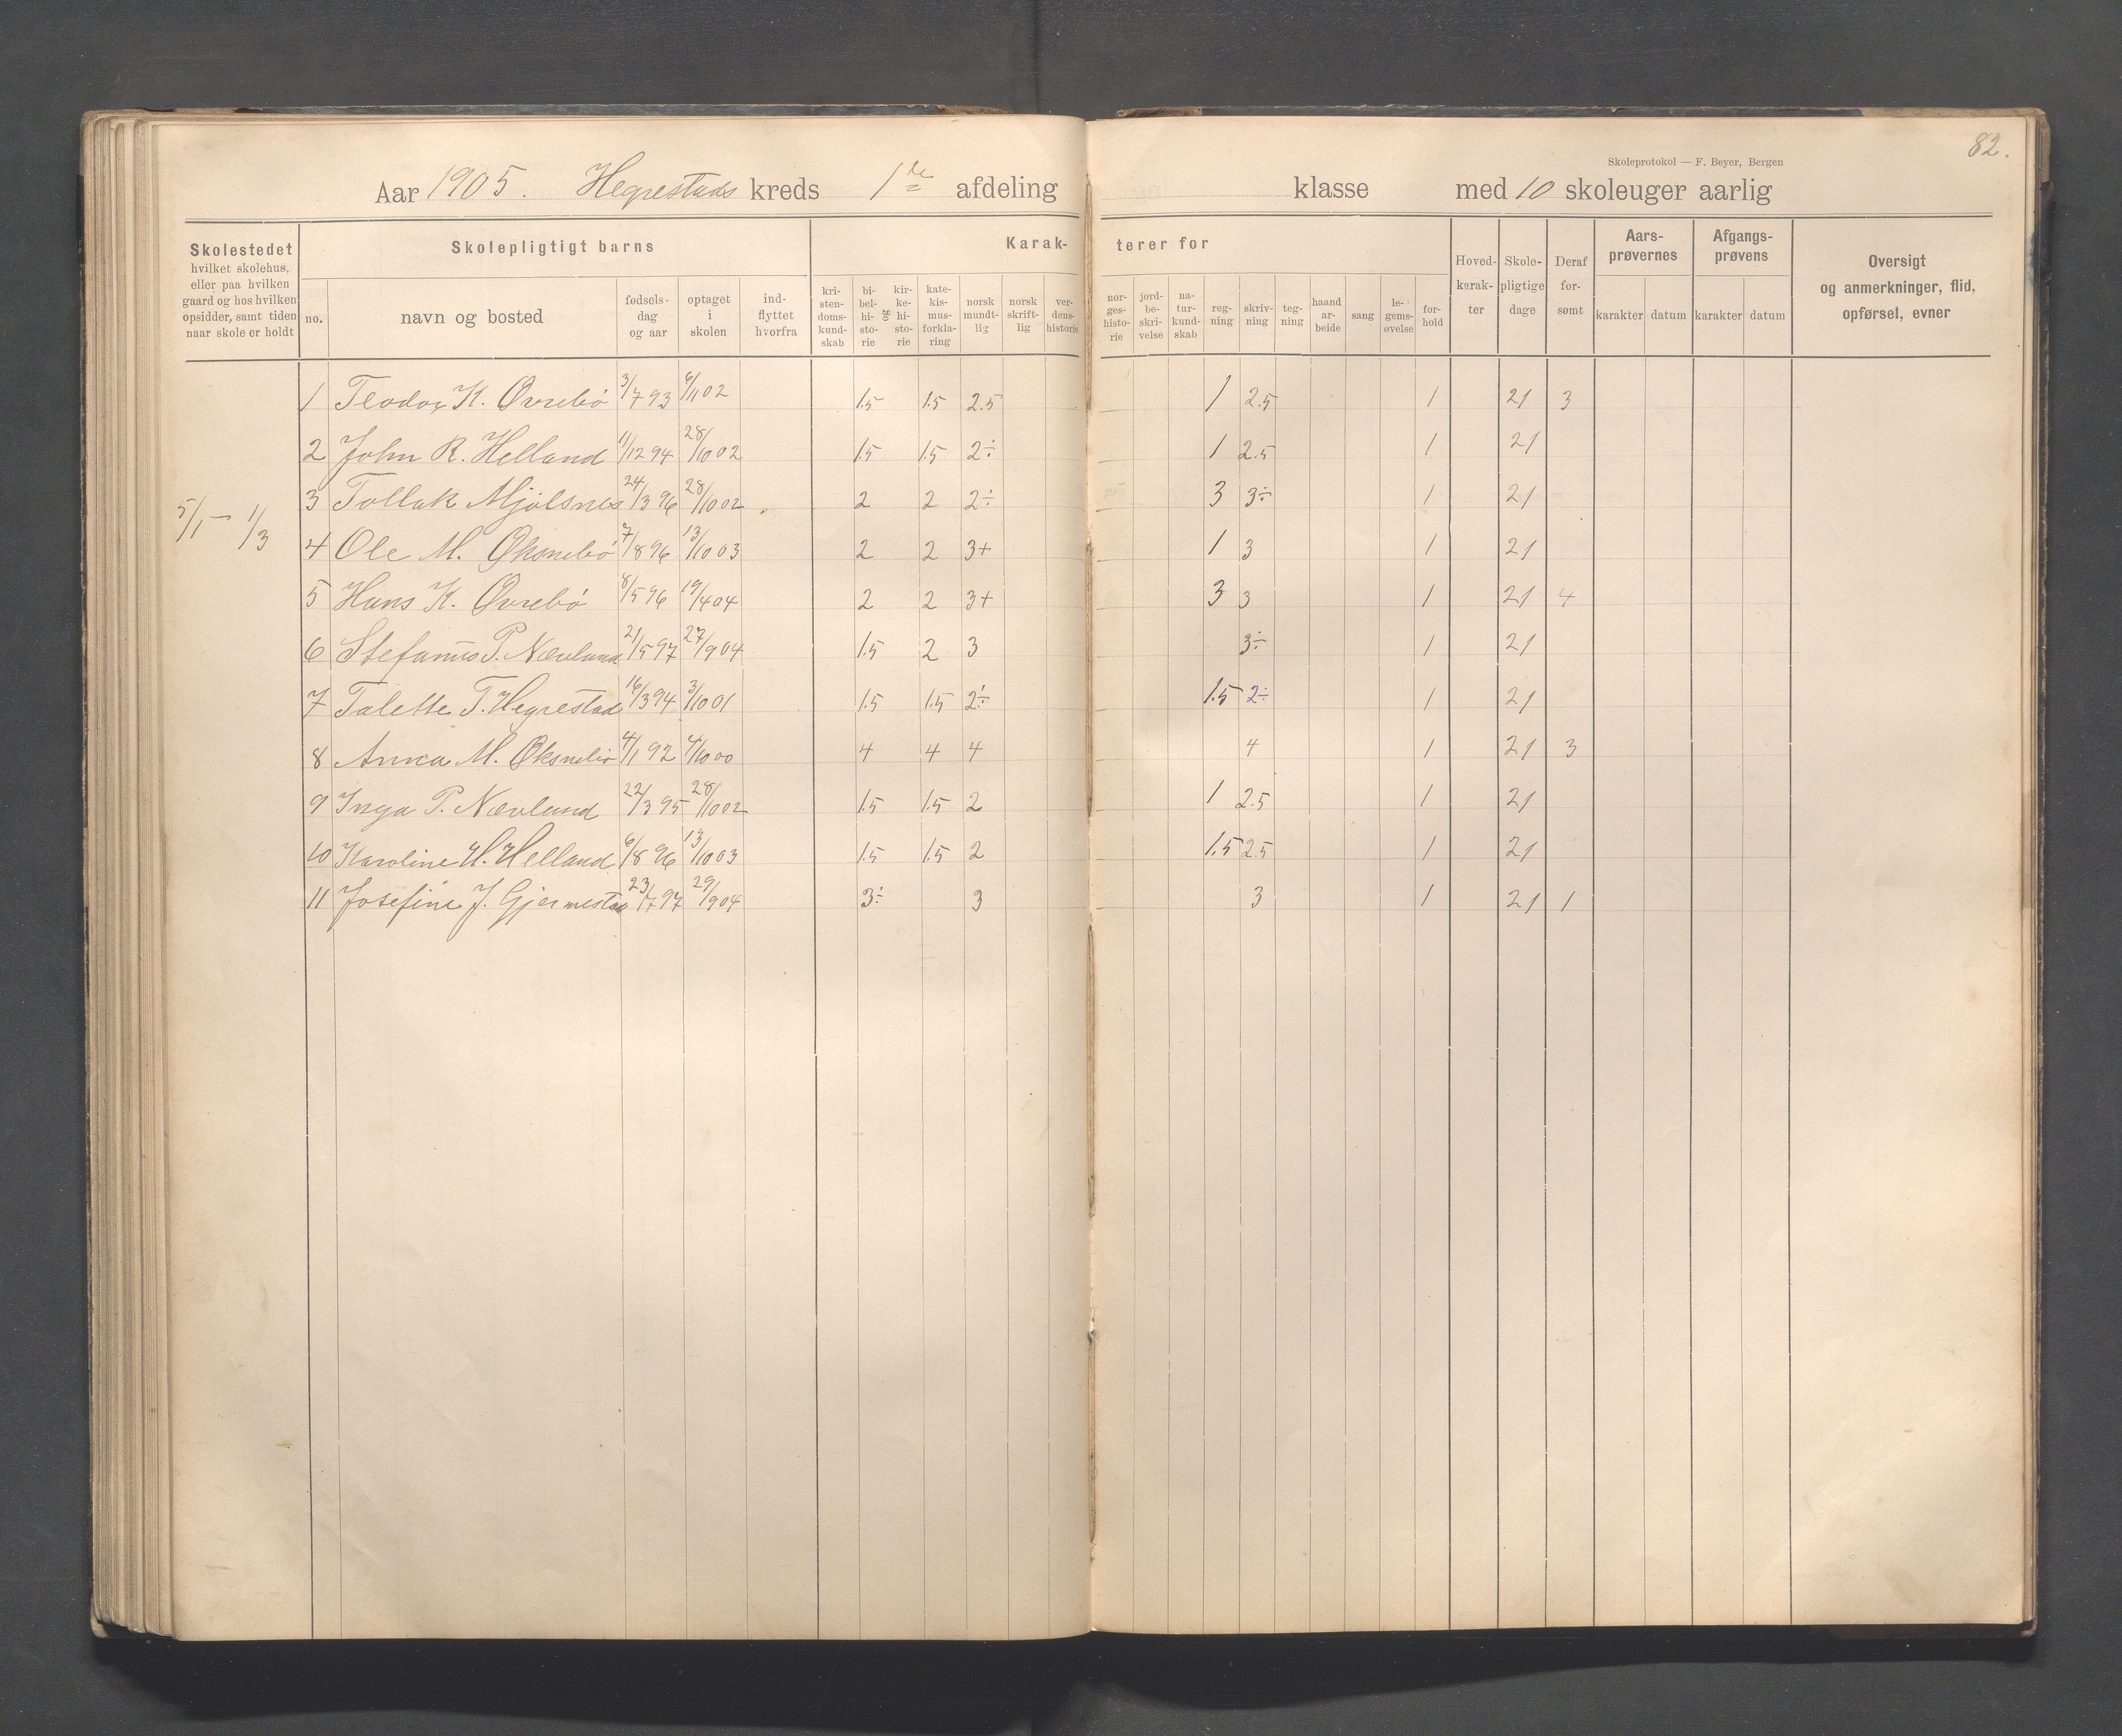 82.
Skoleprotokol — F. Beyer, Bergen
Aar 1905. Hegrestads kreds 1ste afdeling klasse med 10 skoleuger aarlig
Skolestedet hvilket skolehus, eller paa hvilken gaard og hos hvilken opsidder, samt tiden naar skole er holdt
Skolepligtigt barns
Karakterer for
no. navn og bosted fødselsdag og aar optaget i skolen indflyttet hvorfra
kristendomskundskab bibelhistorie og kirkehistorie katekismusforklaring norsk mundtlig norsk skriftlig verdenshistorie
norgeshistorie jordbeskrivelse naturkundskab regning skrivning tegning haandarbeide sang legemsøvelse forhold
Hovedkarakter Skolepligtige dage Deraf forsømt
Aarsprøvernes karakter datum
Afgangsprøvens karakter datum
Oversigt og anmerkninger, flid, opførsel, evner
5/1 — 1/3
1 Teodor K. Øvrebø 3/7 93 6/11 02 1.5 1.5 2.5 1 2.5 1 21 3
2 John R. Helland 11/12 94 28/10 02 1.5 1.5 2÷ 1 2.5 1 21
3 Tollak Mjølsnes 24/3 96 28/10 02 2 2 2÷ 3 3÷ 1 21
4 Ole M. Øksnebø 7/8 96 13/10 03 2 2 3+ 1 3 1 21
5 Hans K. Øvrebø 8/5 96 19/4 04 2 2 3+ 3 3 1 21 4
6 Stefanus P. Nævland 21/5 97 27/9 04 1.5 2 3 3÷ 1 21
7 Talette T. Hegrestad 16/3 94 3/10 01 1.5 1.5 2÷ 1.5 2÷ 1 21
8 Anna M. Øksnebø 4/1 92 4/10 00 4 4 4 4 1 21 3
9 Inga P. Nævland 22/3 95 28/10 02 1.5 1.5 2 1 2.5 1 21
10 Karoline H. Helland 6/8 96 13/10 03 1.5 1.5 2 1.5 2.5 1 21
11 Josefine J. Gjermestad 23/7 97 29/9 04 3÷ 3 3 1 21 1